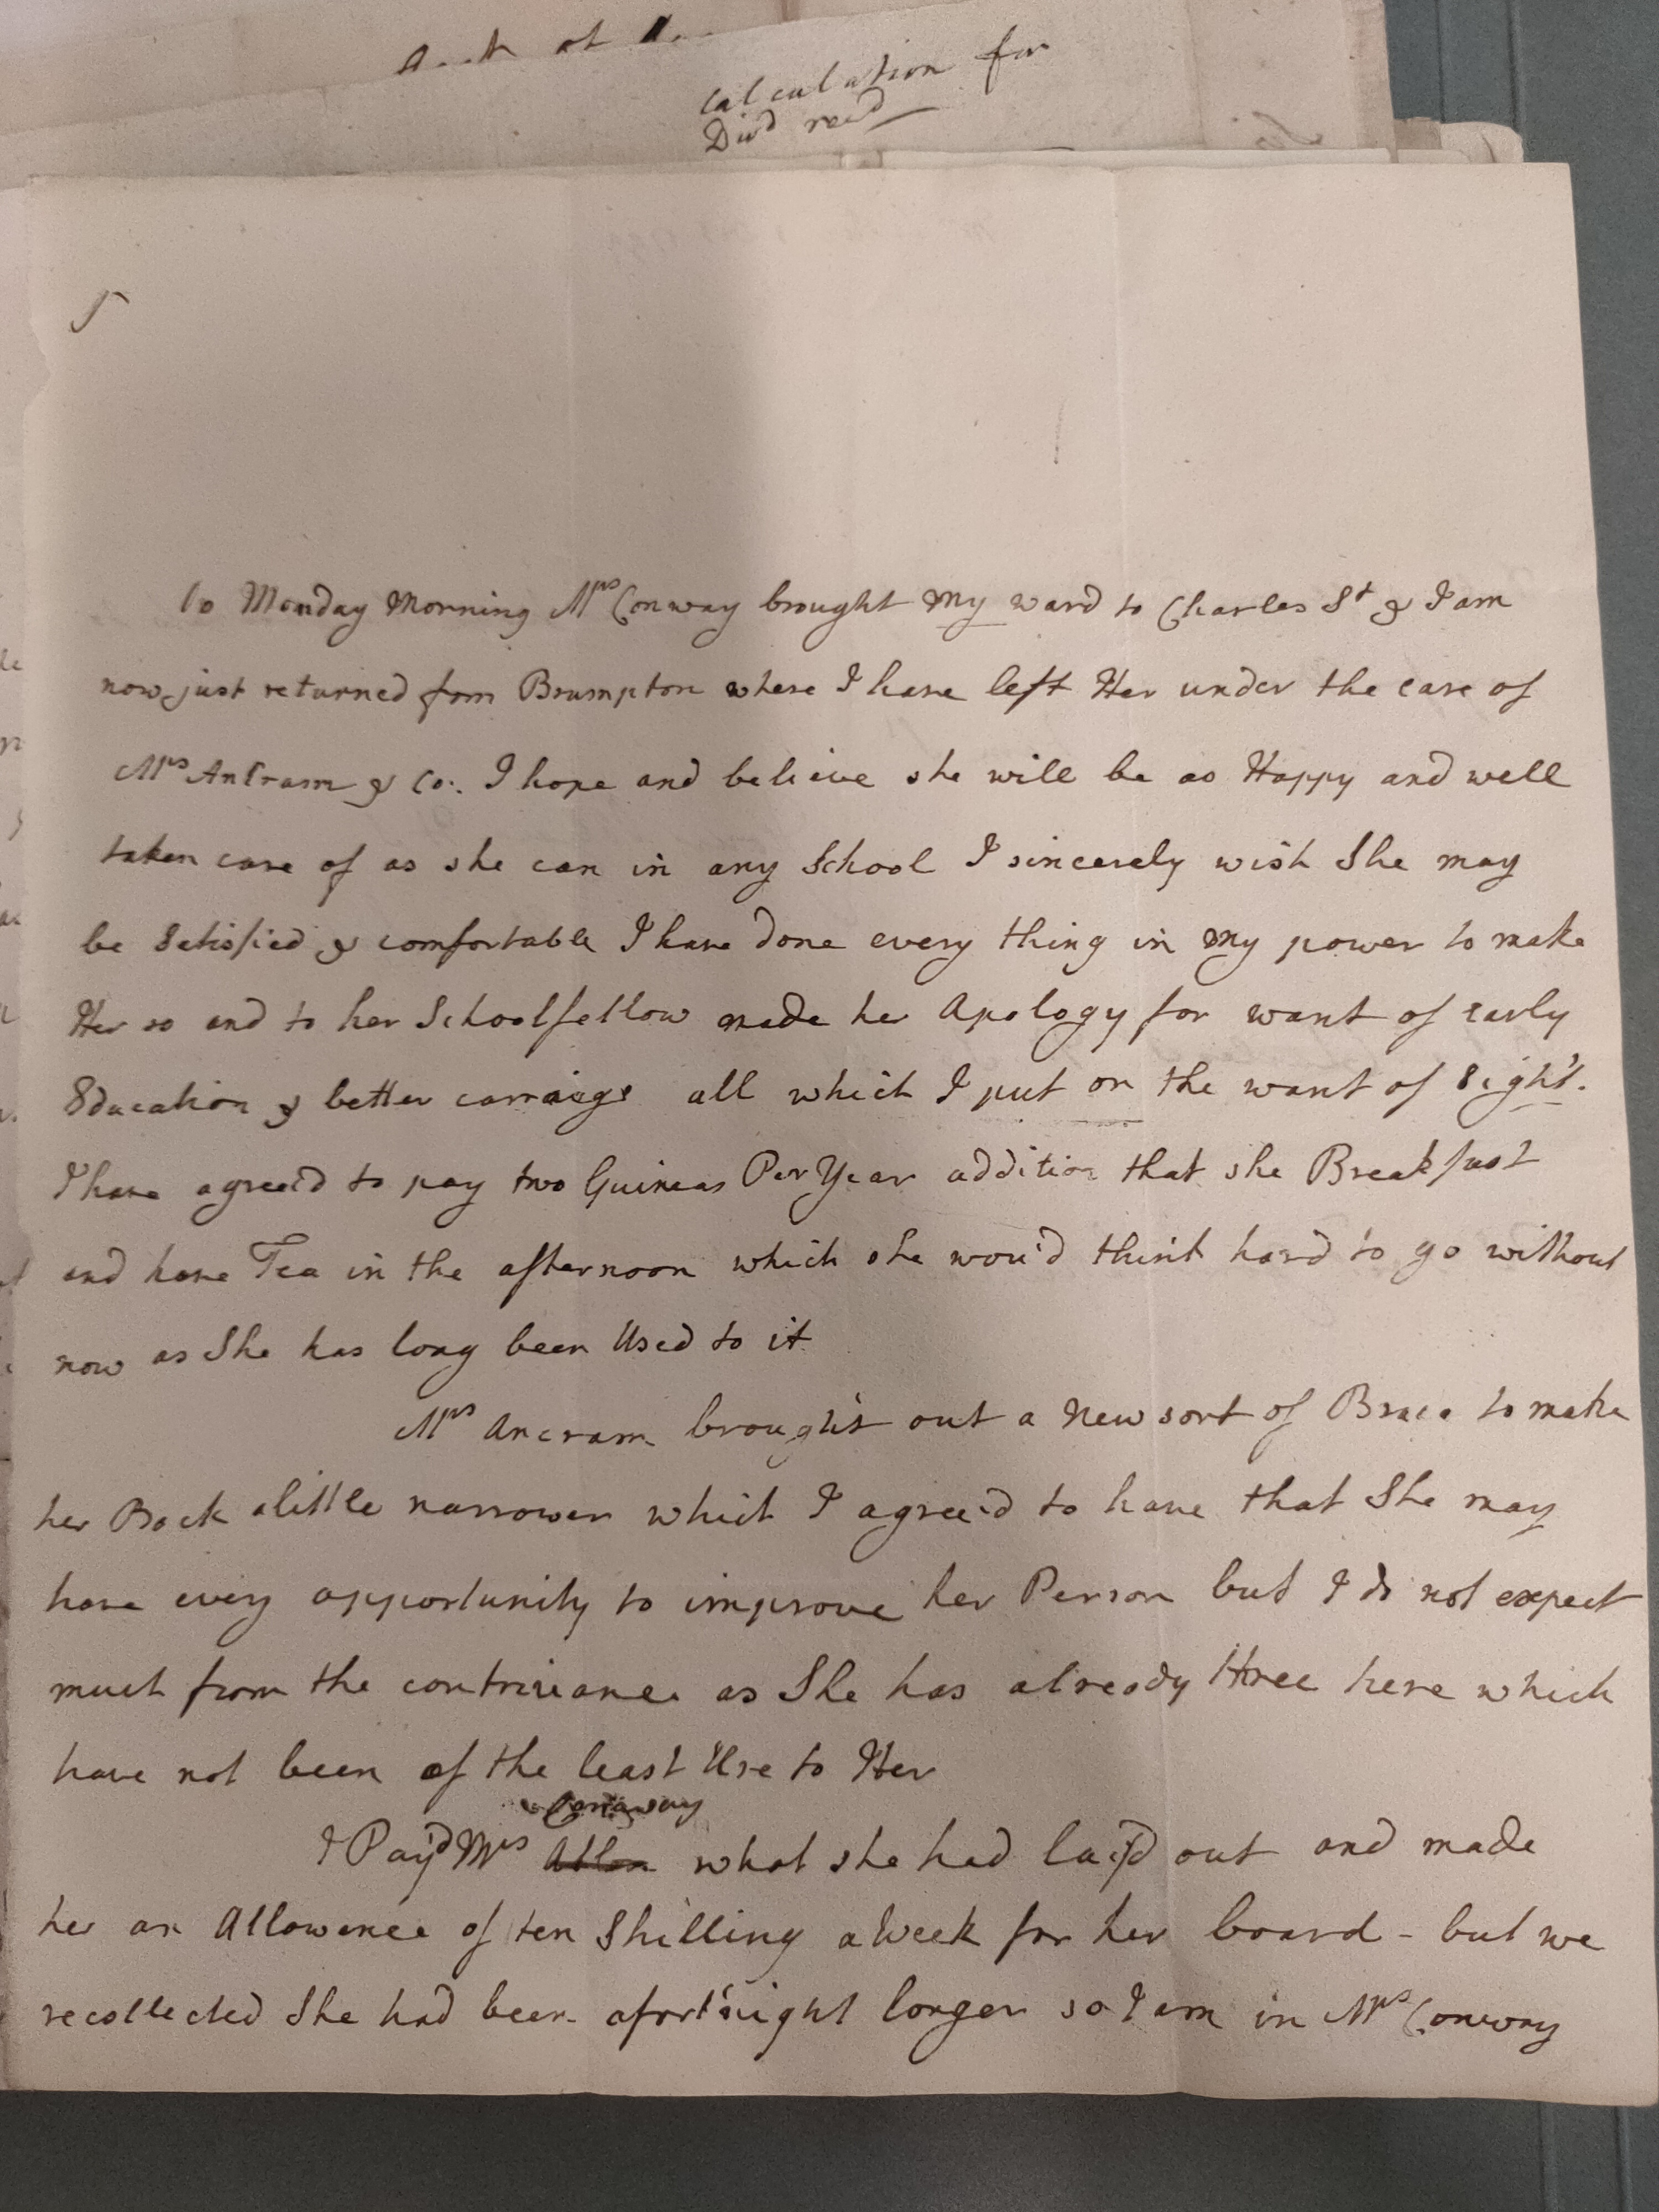 Calculation for
Divd recd
5
10 Monday Morning Mrs Conway brought my ward to Charles St & I am
now just returned from Brumpton where I have left Her under the care of
Mrs Ancram & Co:. I hope and believe she will be as Happy and well
taken care of as she can in any School I sincerely wish She may
be Satisfied & comfortable I have done every thing in my power to make
Her so and to her Schoolfellow made her Apology for want of early
Education & better carraige all which I put on the want of sight.
I have agree'd to pay two Guineas Per Year addition that she Breakfast
and have Tea in the afternoon which she wou'd think hard to go without
now as She has long been Used to it
Mrs Ancram brought out a New sort of Brace to make
her Back a little narrower which I agree'd to have that She may
have every opportunity to improve her Person but I do not expect
much from the contrivance as She has already three here which
have not been of the least Use to Her
Conaway
I Pay'd Mrs Allen what she had lay'd out and made
her an Allowance of ten Shilling a Week for her board - but we
recollected She had been a fortnight longer so I am in Mrs Conway